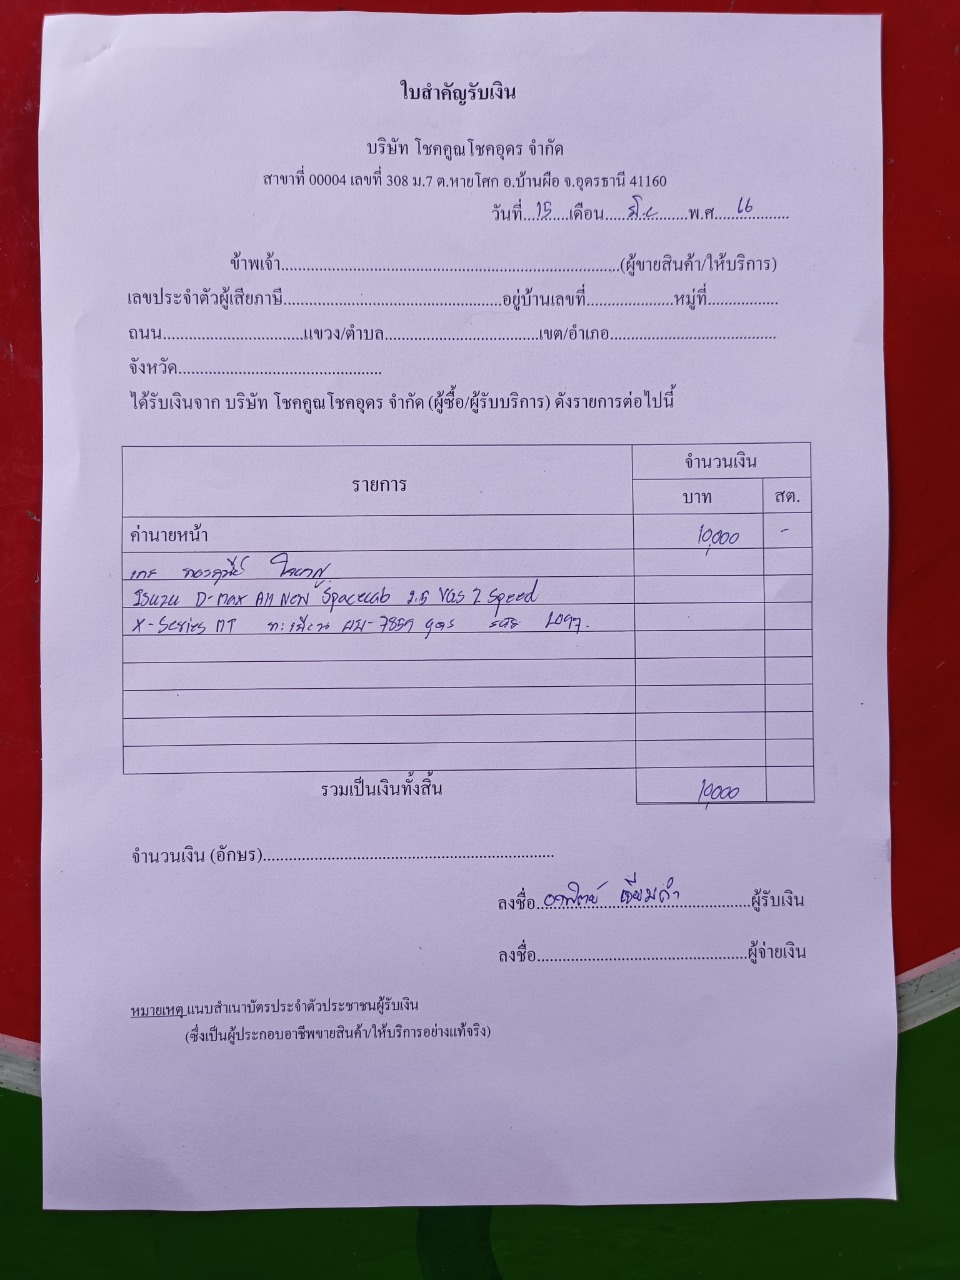 ใบสำคัญรับเงิน
บริษัท โชคคูณโชคอุดร จำกัด
สาขาที่ 00004 เลขที่ 308 ม.7 ต.หายโศก อ.บ้านผือ จ.อุดรธานี 41160
วันที่...15...เดือน...มิ.ย...พ.ศ...66...
ข้าพเจ้า...(ผู้ขายสินค้า/ให้บริการ)
เลขประจำตัวผู้เสียภาษี...อยู่บ้านเลขที่...หมู่ที่...
ถนน...แขวง/ตำบล...เขต/อำเภอ...
จังหวัด...
ได้รับเงินจาก บริษัท โชคคูณโชคอุดร จำกัด (ผู้ซื้อ/ผู้รับบริการ) ดังรายการต่อไปนี้
รายการ จำนวนเงิน
บาท สต.
ค่านายหน้า 10,000 -
Isuzu D-max All New Spacecab 2.5 VGS Z Speed
X-Series MT ทะเบียน ผม-7859 อุดร รหัส
รวมเป็นเงินทั้งสิ้น 10,000
จำนวนเงิน (อักษร)...
ลงชื่อ...ผู้รับเงิน
ลงชื่อ...ผู้จ่ายเงิน
หมายเหตุ แนบสำเนาบัตรประจำตัวประชาชนผู้รับเงิน
(ซึ่งเป็นผู้ประกอบอาชีพขายสินค้า/ให้บริการอย่างแท้จริง)